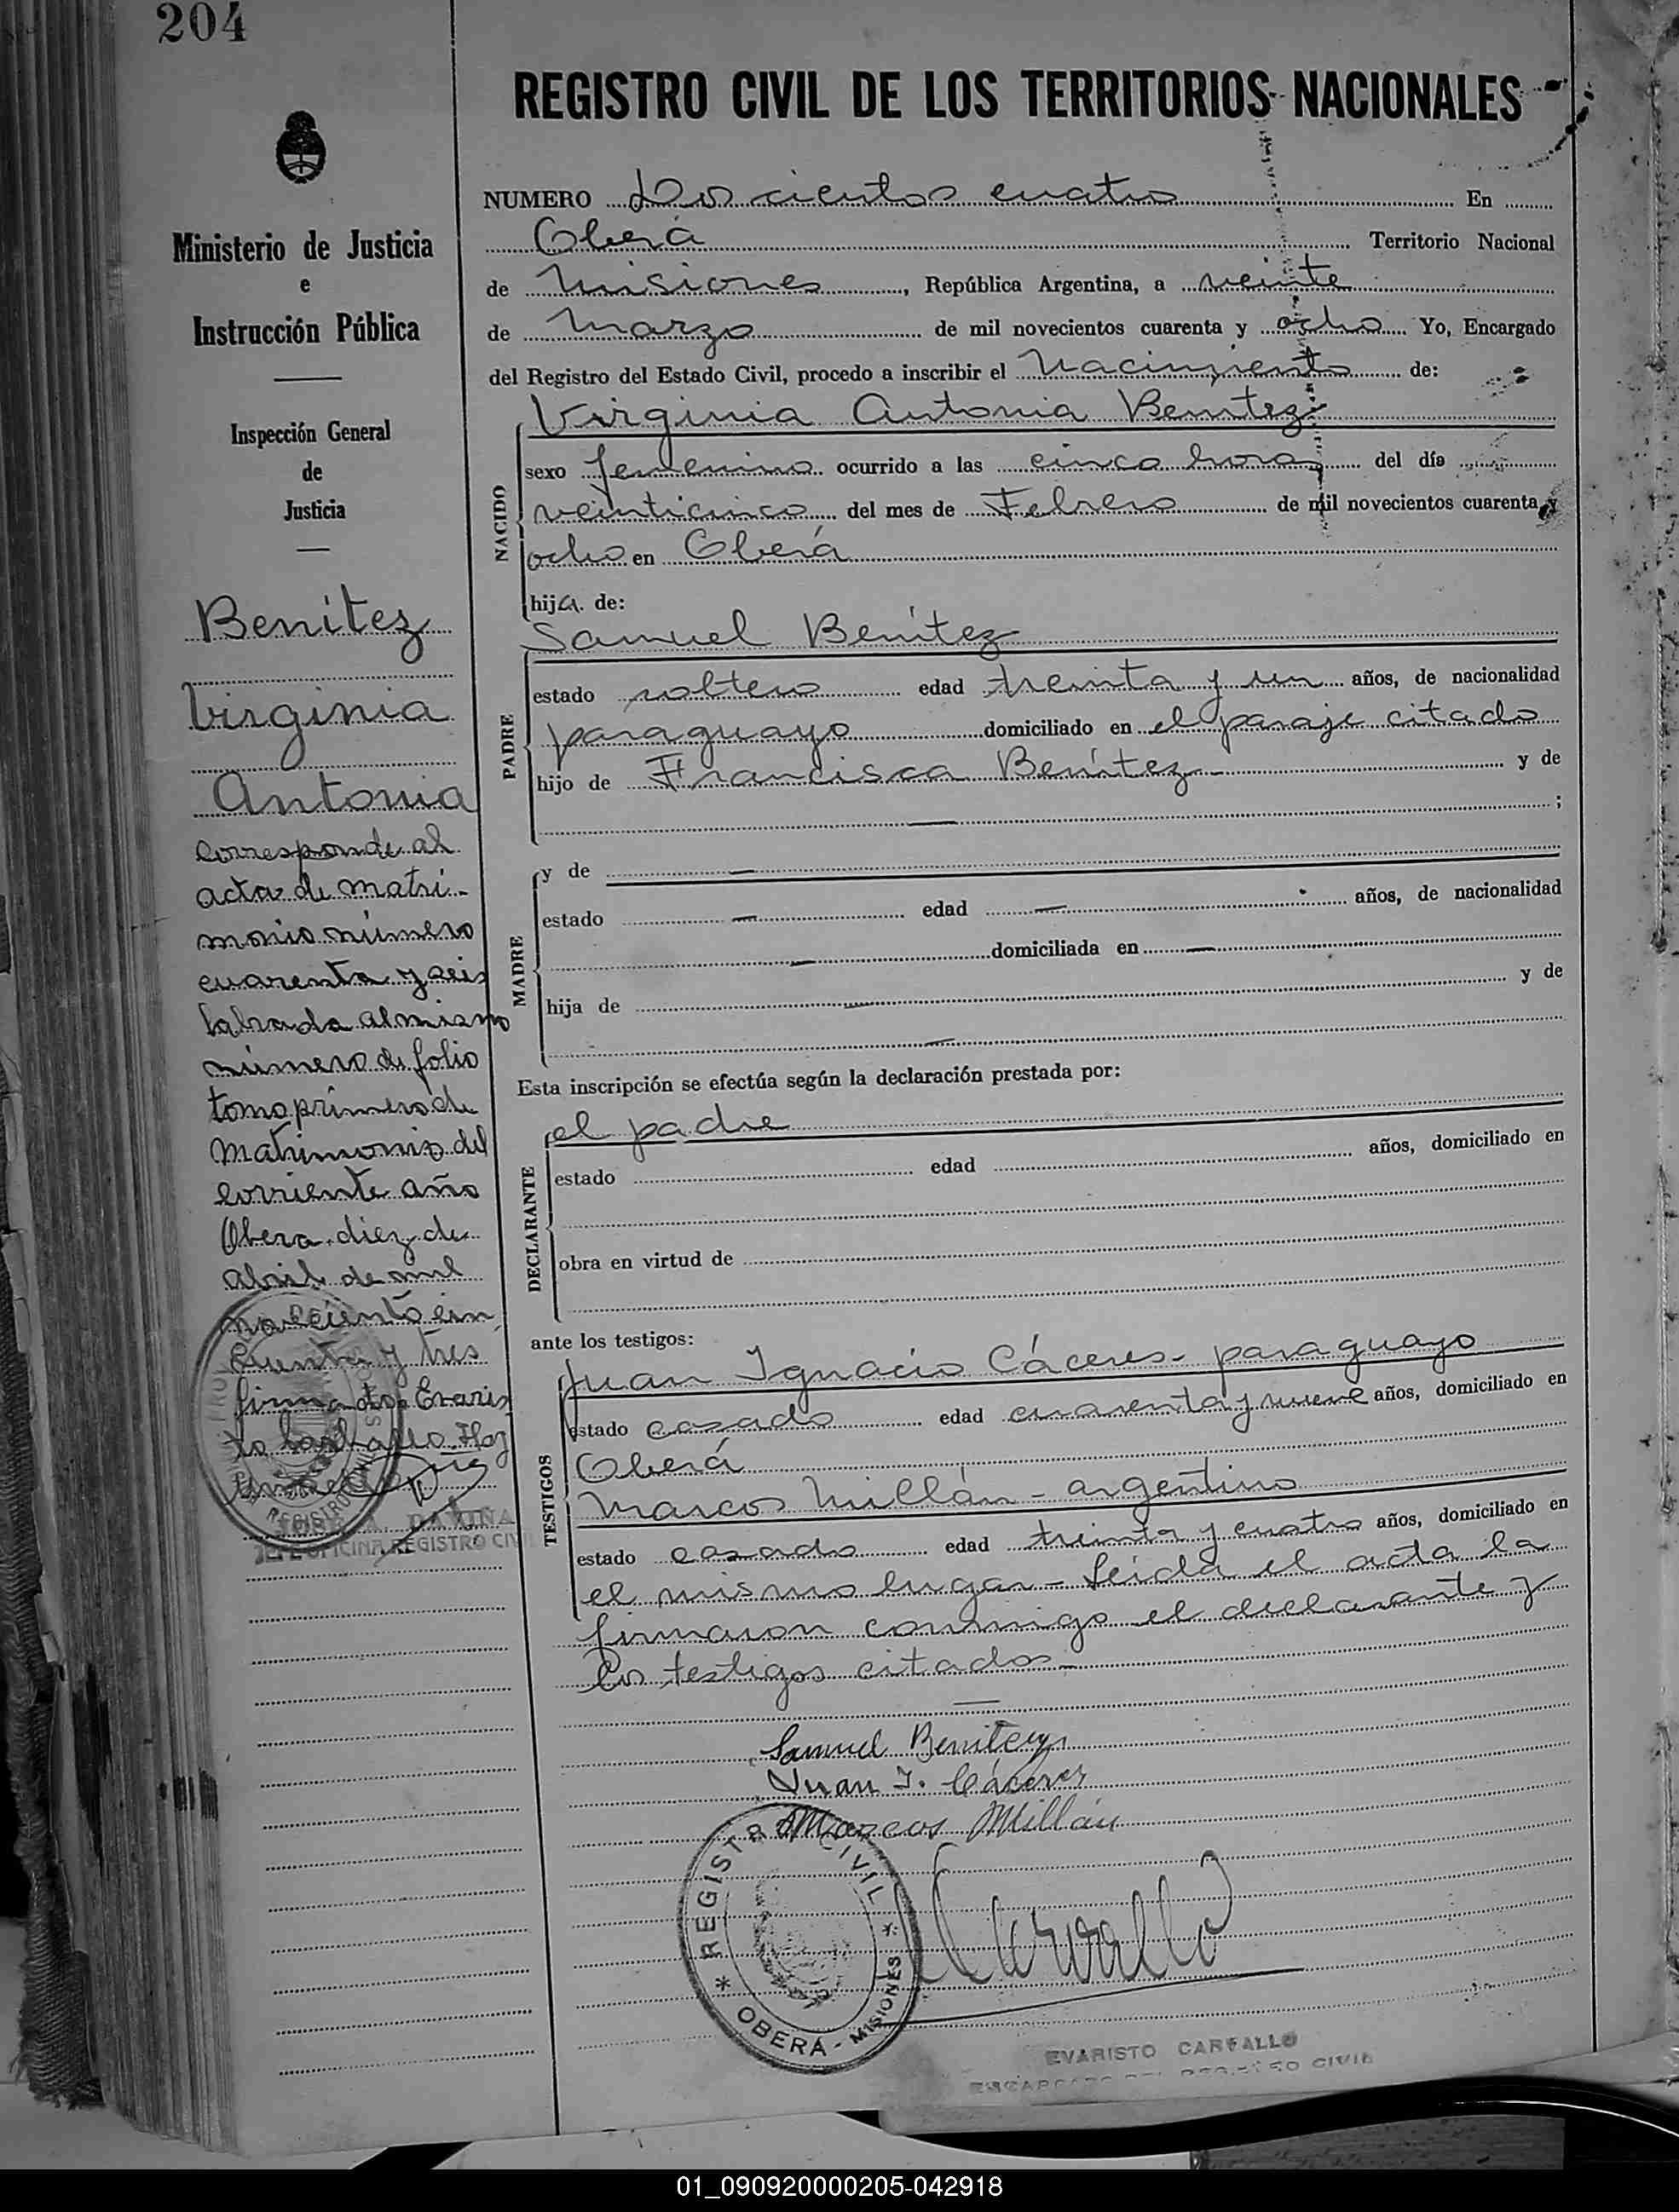 204
REGISTRO CIVIL DE LOS TERRITORIOS NACIONALES
Ministerio de Justicia
e
Instrucción Pública
Inspección General
de
Justicia
Benítez
Virginia
Antonia
Corresponde al
acta de matri-
monio número
cuarenta y seis
labrada al mismo
número de folio
tomo primero de
Matrimonio del
corriente año
Obera diez de
Abril de mil
novecientos cin
cuenta y tres
firmado Evaris
to Carvallo. Hay
JEFE OFICINA REGISTRO CIVIL
NUMERO Doscientos cuatro En
Oberá Territorio Nacional
de Misiones, República Argentina, a veinte
de Marzo de mil novecientos cuarenta y ocho Yo, Encargado
del Registro del Estado Civil, procedo a inscribir el Nacimiento de:
Virginia Antonia Benítez
NACIDO
sexo femenino ocurrido a las cinco horas del día
veinticinco del mes de Febrero de mil novecientos cuarenta y
ocho en Oberá
hija de:
Samuel Benítez
PADRE
estado soltero edad treinta y un años, de nacionalidad
paraguayo domiciliado en el paraje citado
hijo de Francisca Benítez - y de
— ;
MADRE
y de —
estado — edad — años, de nacionalidad
— domiciliada en —
hija de — y de
—
Esta inscripción se efectúa según la declaración prestada por:
el padre
DECLARANTE
estado edad años, domiciliado en
obra en virtud de
ante los testigos:
Juan Ignacio Cáceres - paraguayo
TESTIGOS
estado casado edad cuarenta y nueve años, domiciliado en
Oberá
Marcos Millán - argentino
estado casado edad treinta y cuatro años, domiciliado en
el mismo lugar - Leida el acta la
firmaron conmigo el declarante y
los testigos citados -
Samuel Benitez
Juan I. Cáceres
Marcos Millán
Carvallo
* REGISTRO CIVIL *
OBERÁ - MISIONES
EVARISTO CARVALLO
ENCARGADO DEL REGISTRO CIVIL
01_090920000205-042918